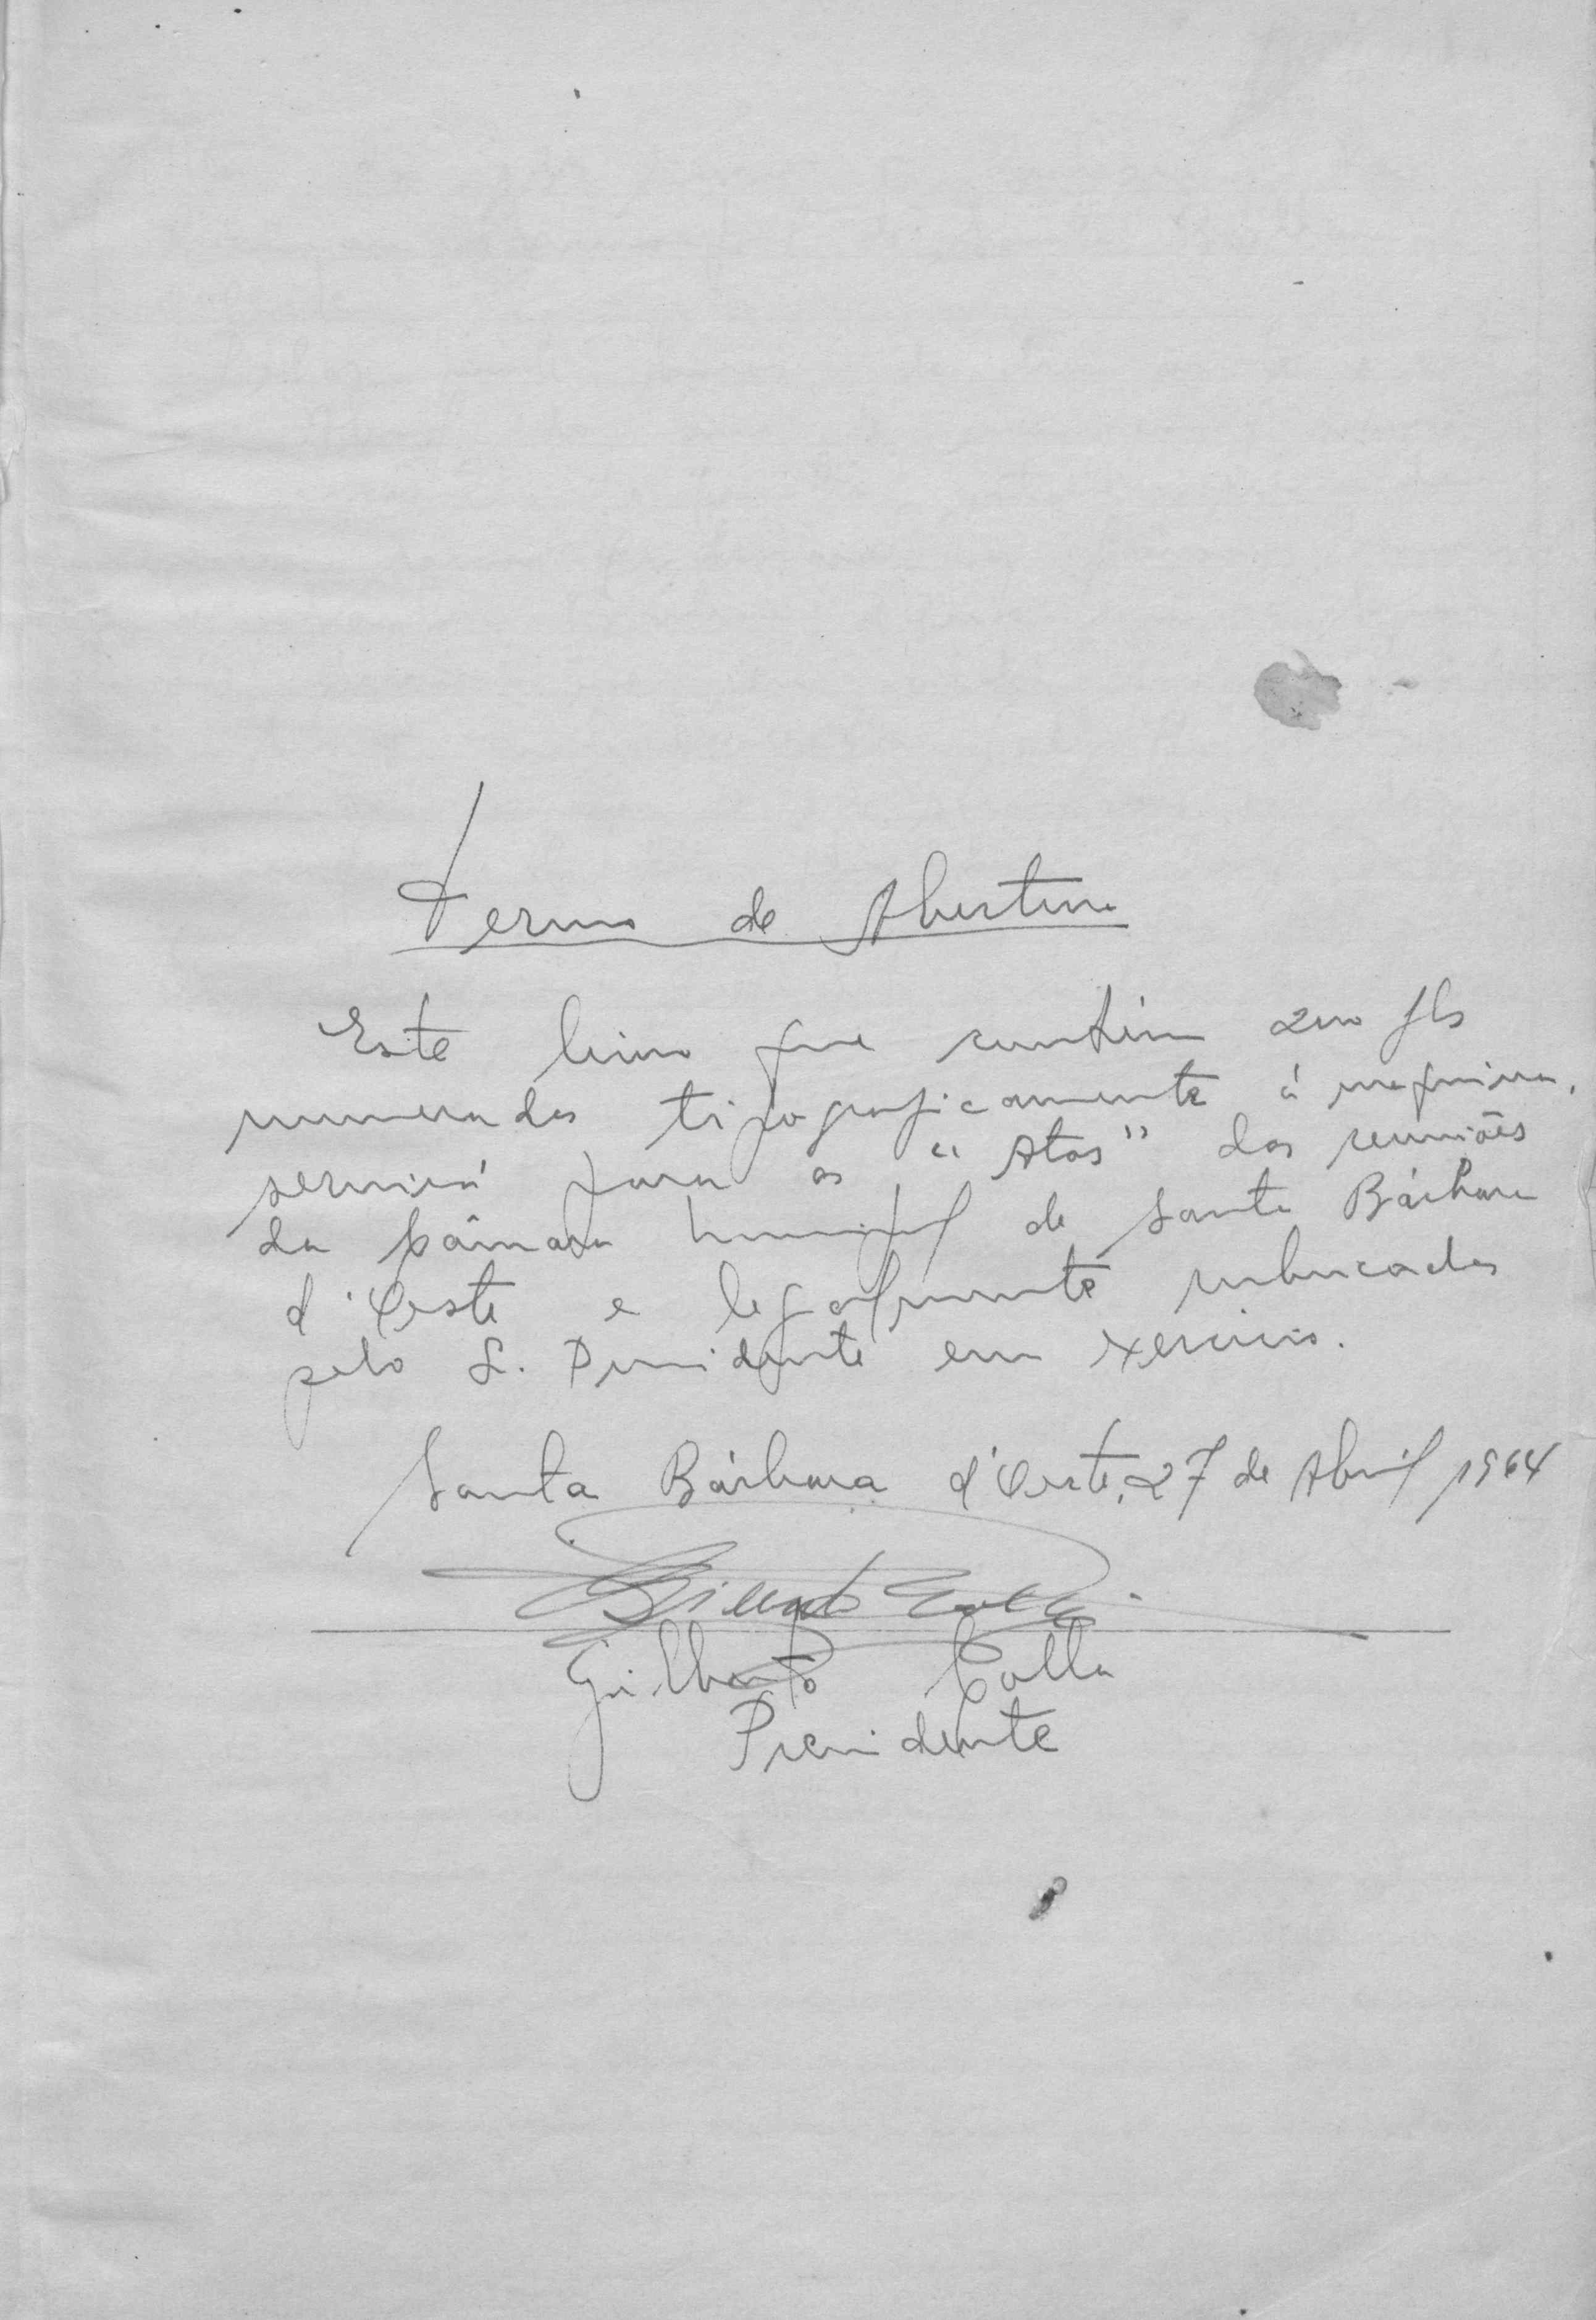 Termo de Abertura
Este livro que contém 200 fls
numeradas tipograficamente á maquina,
servirá para as "Atas" das reuniões
da Câmara Municipal de Santa Bárbara
d'Oeste e legalmente rubricadas
pelo S. Presidente em exercicio.
Santa Bárbara d'Oeste, 27 de Abril 1964
Guilherto Colla
Presidente